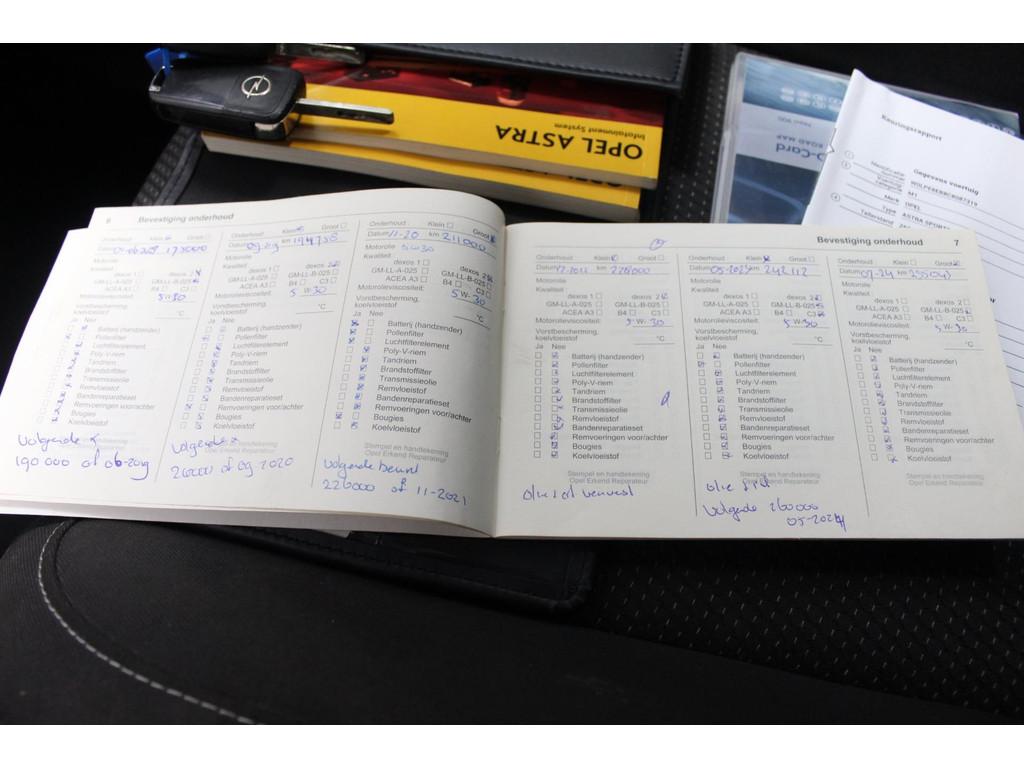 OPEL ASTRA
Infotainment System
CD-Card
ROAD MAP
Keuringsrapport
Gegevens voertuig
Merk OPEL
Type
6 Bevestiging onderhoud
Onderhoud Klein
Datum km 173000
Motorolie
Kwaliteit
dexos 1 dexos 2
GM-LL-A-025 GM-LL-B-025
ACEA A3 B4 C3
Motorolieviscositeit: 5W30
Ja Nee
Batterij (handzender)
Pollenfilter
Luchtfilterelement
Poly-V-riem
Tandriem
Brandstoffilter
Transmissieolie
Remvloeistof
Bandenreparatieset
Remvoeringen voor/achter
Bougies
Koelvloeistof
Volgende
190 000 of 06-2019
Onderhoud Klein Groot
Datum 09-2019 km 194758
Motorolie
Kwaliteit
dexos 1 dexos 2
GM-LL-A-025 GM-LL-B-025
ACEA A3 B4 C3
Motorolieviscositeit: 5W30
Vorstbescherming,
koelvloeistof °C
Ja Nee
Batterij (handzender)
Pollenfilter
Luchtfilterelement
Poly-V-riem
Tandriem
Brandstoffilter
Transmissieolie
Remvloeistof
Bandenreparatieset
Remvoeringen voor/achter
Bougies
Koelvloeistof
Stempel en handtekening
Opel Erkend Reparateur
Volgende
of 09 2020
Onderhoud Klein Groot
Datum 11-20 km 211000
Motorolie 5W30
Kwaliteit
dexos 1 dexos 2
GM-LL-A-025 GM-LL-B-025
ACEA A3 B4 C3
Motorolieviscositeit: 5W-30
Vorstbescherming,
koelvloeistof °C
Ja Nee
Batterij (handzender)
Pollenfilter
Luchtfilterelement
Poly-V-riem
Tandriem
Brandstoffilter
Transmissieolie
Remvloeistof
Bandenreparatieset
Remvoeringen voor/achter
Bougies
Koelvloeistof
Stempel en handtekening
Opel Erkend Reparateur
Volgende beurt
226000 of 11-2021
Bevestiging onderhoud 7
Onderhoud Klein Groot
Datum km 226000
Motorolie
Kwaliteit
dexos 1 dexos 2
GM-LL-A-025 GM-LL-B-025
ACEA A3 B4 C3
Motorolieviscositeit: 5W-30
Vorstbescherming,
koelvloeistof °C
Ja Nee
Batterij (handzender)
Pollenfilter
Luchtfilterelement
Poly-V-riem
Tandriem
Brandstoffilter
Transmissieolie
Remvloeistof
Bandenreparatieset
Remvoeringen voor/achter
Bougies
Koelvloeistof
Stempel en handtekening
Opel Erkend Reparateur
Onderhoud Klein Groot
Datum 05-2023 km 242112
Motorolie
Kwaliteit
dexos 1 dexos 2
GM-LL-A-025 GM-LL-B-025
ACEA A3 B4 C3
Motorolieviscositeit: 5W30
Vorstbescherming,
koelvloeistof °C
Ja Nee
Batterij (handzender)
Pollenfilter
Luchtfilterelement
Poly-V-riem
Tandriem
Brandstoffilter
Transmissieolie
Remvloeistof
Bandenreparatieset
Remvoeringen voor/achter
Bougies
Koelvloeistof
Stempel en handtekening
Opel Erkend Reparateur
Volgende 260000
05-2024
Onderhoud Klein Groot
Datum 09-24 km
Motorolie
Kwaliteit
dexos 1 dexos 2
GM-LL-A-025 GM-LL-B-025
ACEA A3 B4 C3
Motorolieviscositeit: 5W-30
Vorstbescherming,
koelvloeistof °C
Ja Nee
Batterij (handzender)
Pollenfilter
Luchtfilterelement
Poly-V-riem
Tandriem
Brandstoffilter
Transmissieolie
Remvloeistof
Bandenreparatieset
Remvoeringen voor/achter
Bougies
Koelvloeistof
Stempel en handtekening
Opel Erkend Reparateur